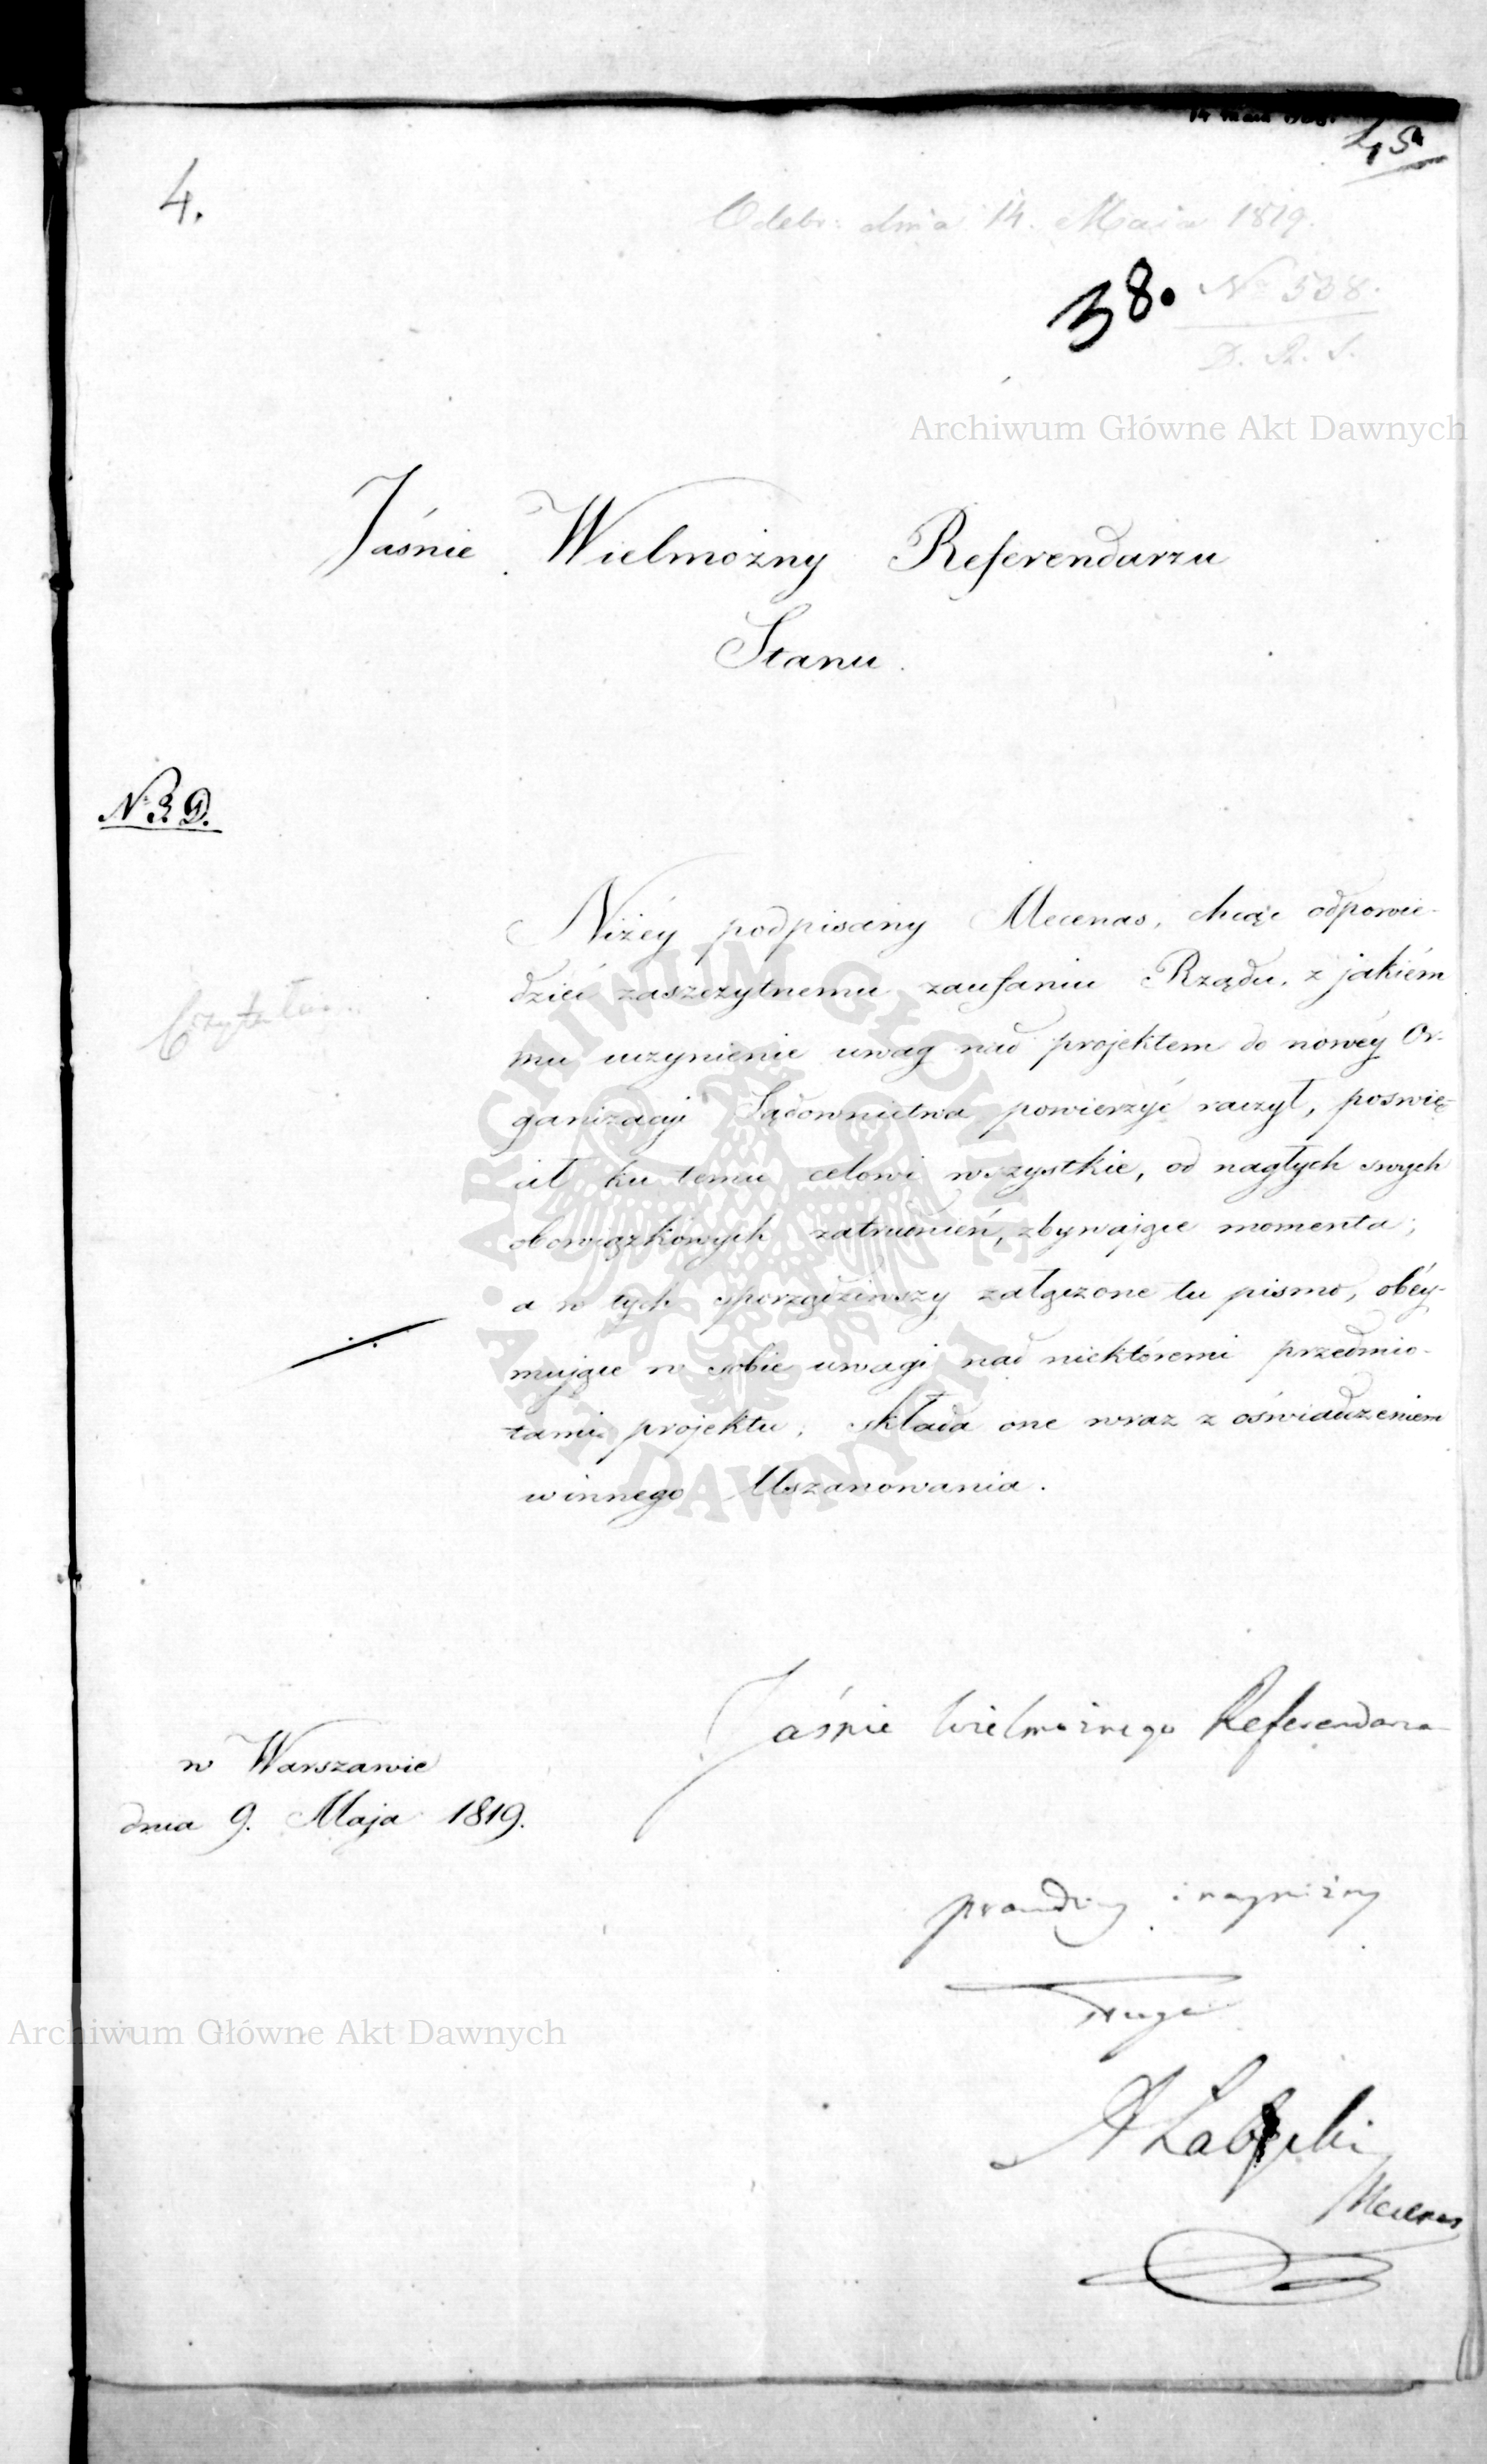 4.
Odebr: dnia 14. Maja 1819.
38. No 538.
D. R. S.
Archiwum Główne Akt Dawnych
Jaśnie Wielmożny Referendarzu
Stanu.
No 3. D.
Niżéy podpisany Mecenas, chcąc odpowie-
dzieć zaszczytnemu zaufaniu Rządu, z jakiém
mu uczynienie uwag nad projektem do nowéy Or-
ganizacyi Sądownictwa powierzyć raczył, poswię-
cił ku temu celowi wszystkie, od nagłych swych
obowiązkowych zatrudnień, zbywające momenta;
a w tych sporządziwszy załączone tu pismo, obéy-
mujące w sobie uwagi nad niektóremi przedmio-
tami projektu, składa one wraz z oświadczeniem
winnego Uszanowania.
Czytałem.
ARCHIWUM GŁÓWNE AKT DAWNYCH
Jaśnie Wielmożnego Referendarza
w Warszawie
dnia 9. Maja 1819.
prawdziwy i nayniższy
sługa
A Łabęcki
Mecenas
Archiwum Główne Akt Dawnych